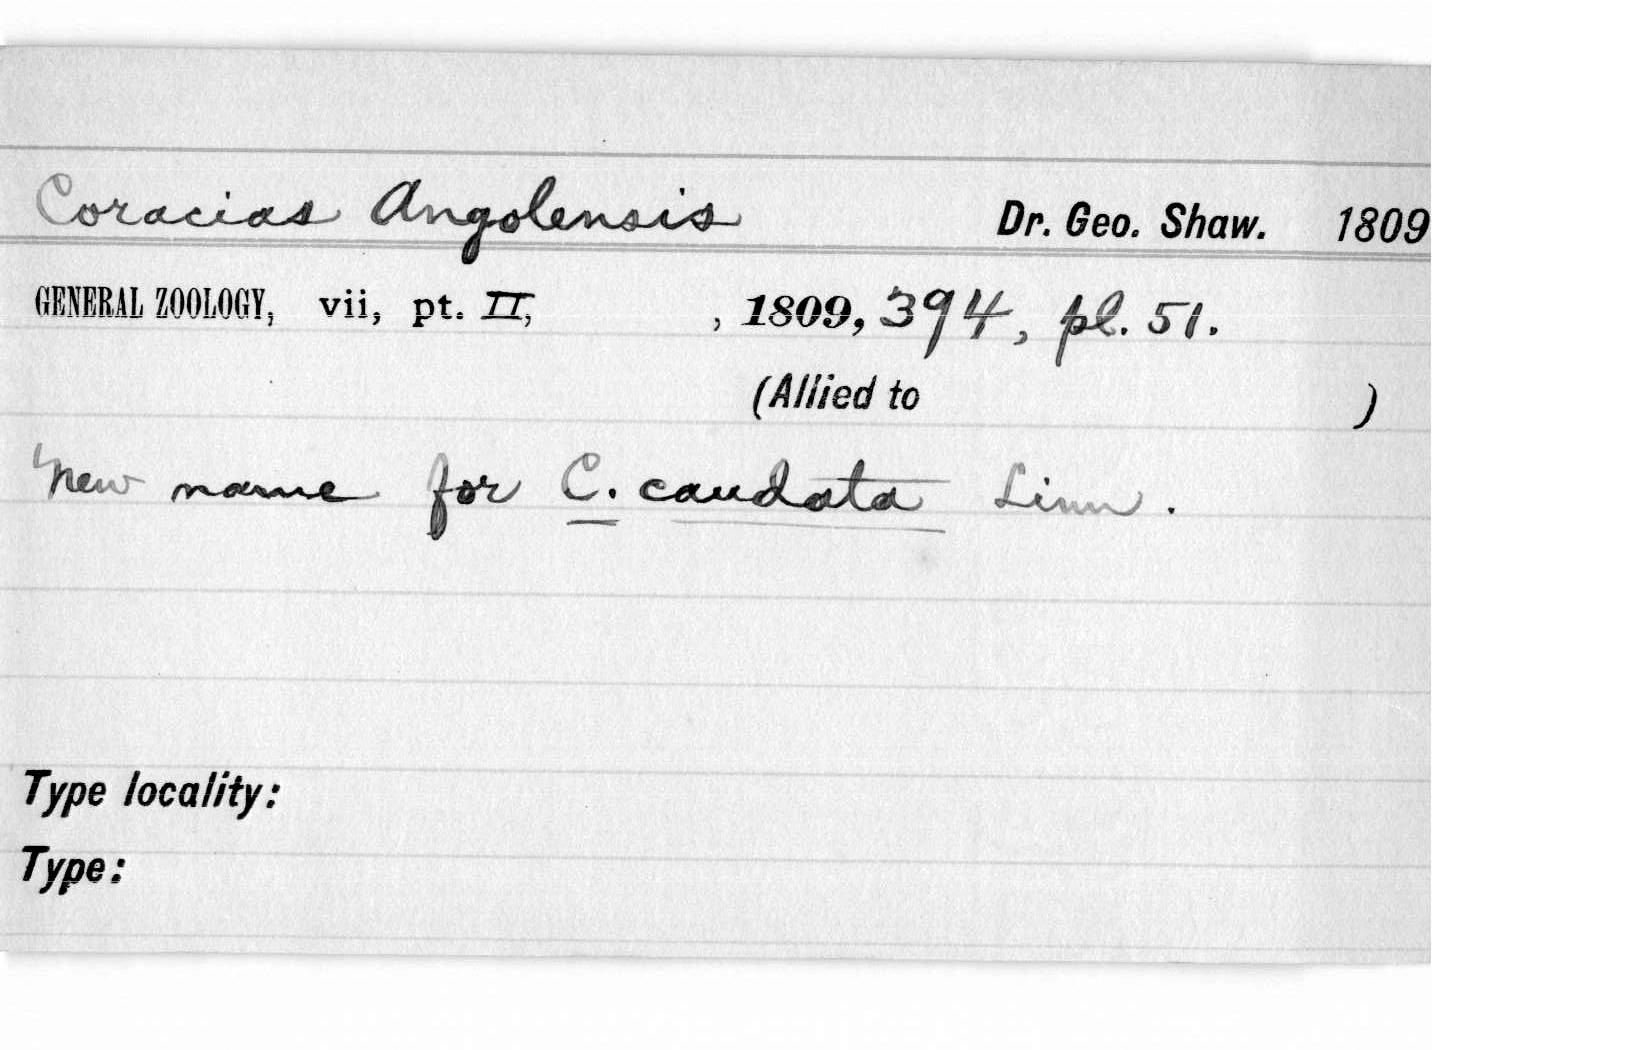 Coracias Angolensis Dr. Geo. Shaw. 1809
GENERAL ZOOLOGY, vii, pt. II, , 1809, 394, pl. 51.
(Allied to )
New name for C. caudata Linn.
Type locality:
Type: